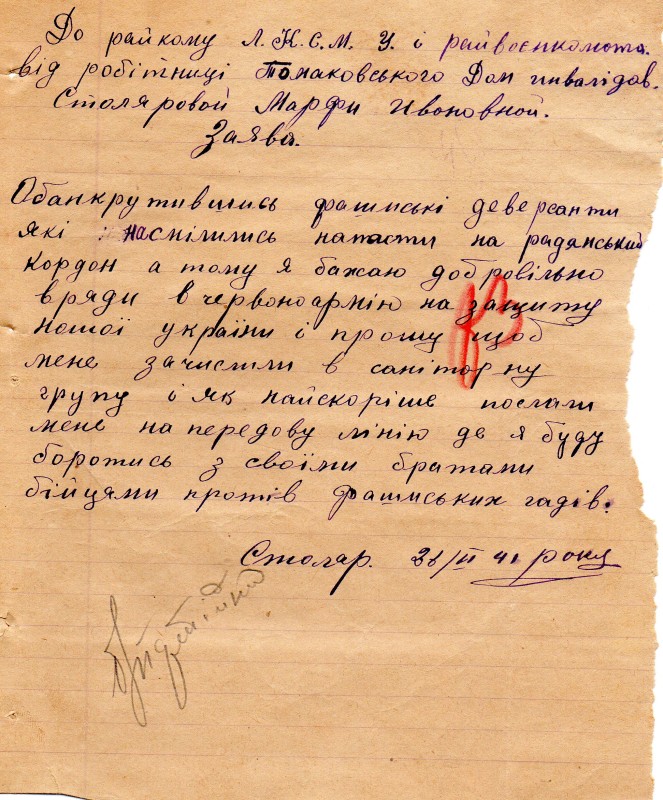 До райкому Л.К.С.М.У. і райвоєнкомота.
від робітниці Томаковського Дом инвалідов.
Столяровой Марфи Ивоновной.
Заява.
Обанкрутившись фашиські деверсанти
які насмілились напасти на радянський
кордон а тому я бажаю добровільно
в ряди в червоноармію на защиту
нашої україни і прошу щоб
мене зачислили в саніторну
групу і як найскоріше послали
мене на передову лінію де я буду
боротись з своїми братами
бійцами протів фашиських гадів.
Столяр. 41 року